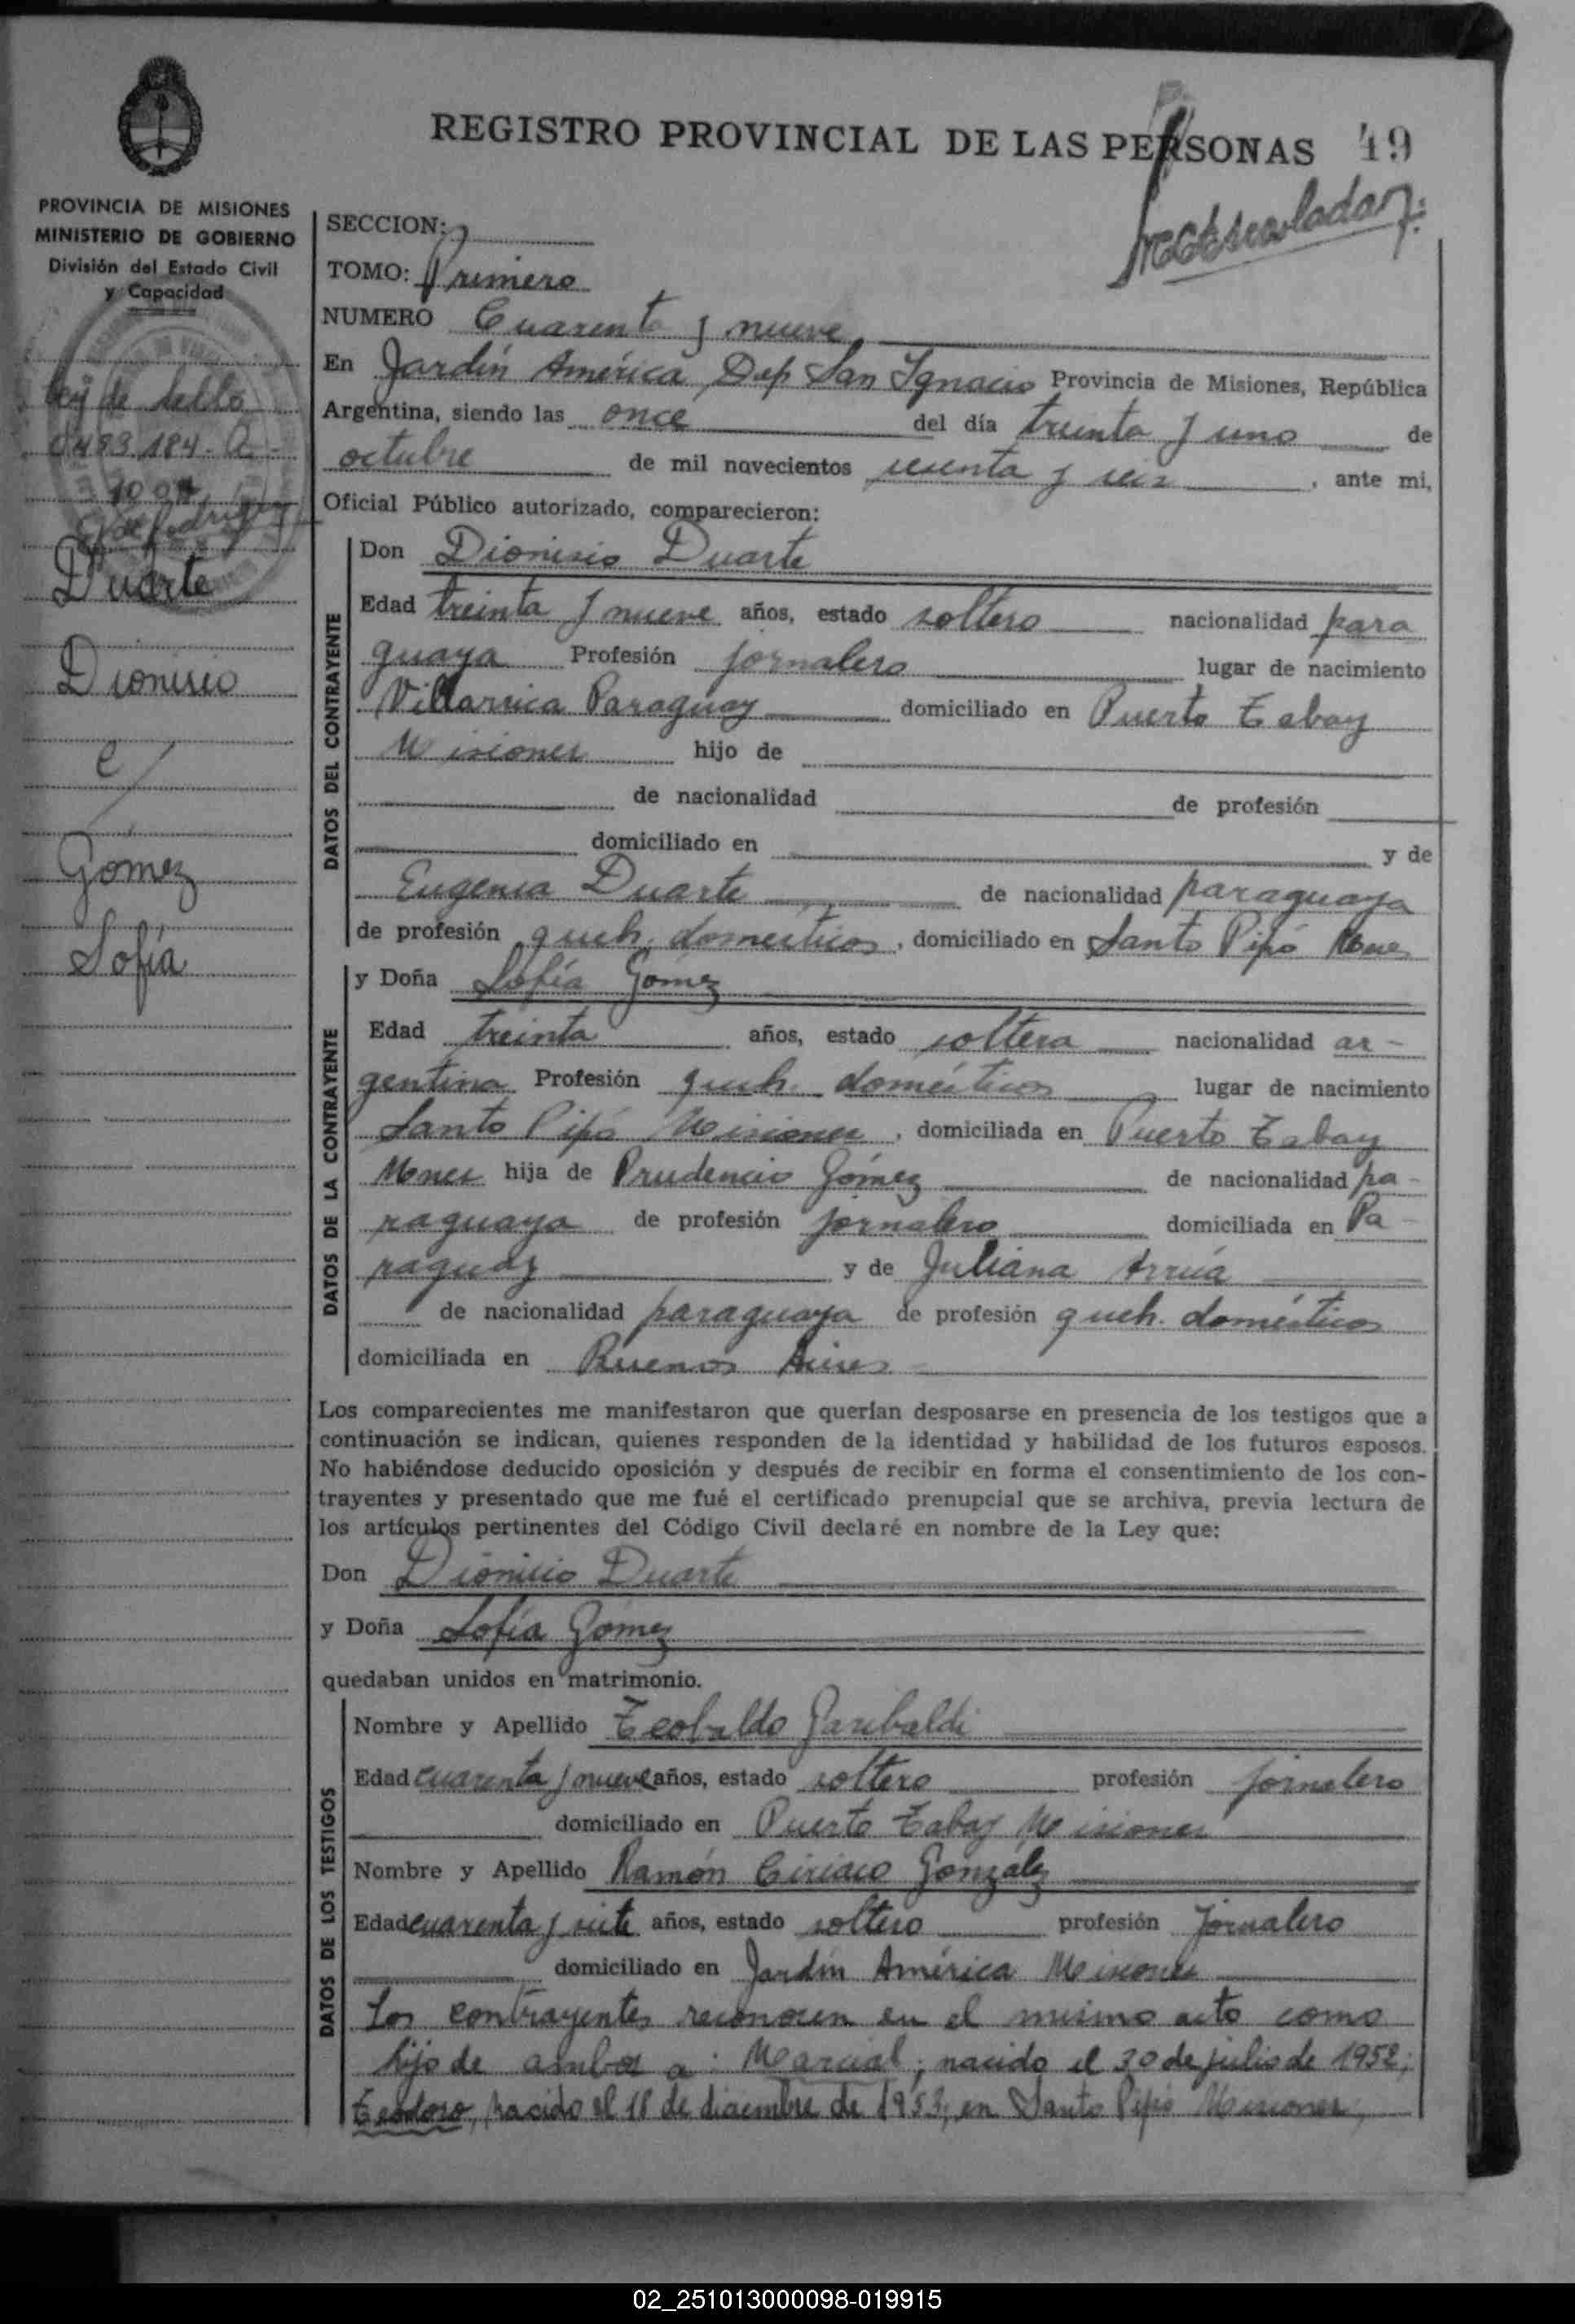 REGISTRO PROVINCIAL DE LAS PERSONAS 49
PROVINCIA DE MISIONES
MINISTERIO DE GOBIERNO
División del Estado Civil
y Capacidad
Ley de sello
Duarte
Dionisio
e/
Gómez
Sofía
SECCION:
TOMO: Primero
NUMERO Cuarenta y nueve
En Jardín América Dep San Ignacio Provincia de Misiones, República
Argentina, siendo las once del día treinta y uno de
octubre de mil novecientos sesenta y seis, ante mi,
Oficial Público autorizado, comparecieron:
DATOS DEL CONTRAYENTE
Don Dionisio Duarte
Edad treinta y nueve años, estado soltero nacionalidad para
guaya Profesión jornalero lugar de nacimiento
Villarrica Paraguay domiciliado en Puerto Tabay
Misiones hijo de
de nacionalidad de profesión
domiciliado en y de
Eugenia Duarte de nacionalidad paraguaya
de profesión queh. domésticos, domiciliado en Santo Pipó Mnes
DATOS DE LA CONTRAYENTE
y Doña Sofía Gomez
Edad treinta años, estado soltera nacionalidad ar-
gentina Profesión queh. domésticos lugar de nacimiento
Santo Pipó Misiones, domiciliada en Puerto Tabay
Mones hija de Prudencio Gómez de nacionalidad pa-
raguaya de profesión jornalero domiciliada en Pa-
raguay y de Juliana Arrúa
de nacionalidad paraguaya de profesión queh. domésticos
domiciliada en Buenos Aires
Los comparecientes me manifestaron que querían desposarse en presencia de los testigos que a
continuación se indican, quienes responden de la identidad y habilidad de los futuros esposos.
No habiéndose deducido oposición y después de recibir en forma el consentimiento de los con-
trayentes y presentado que me fué el certificado prenupcial que se archiva, previa lectura de
los artículos pertinentes del Código Civil declaré en nombre de la Ley que:
Don Dionisio Duarte
y Doña Sofía Gómez
quedaban unidos en matrimonio.
DATOS DE LOS TESTIGOS
Nombre y Apellido Teobaldo Garibaldi
Edad cuarenta y nueve años, estado soltero profesión jornalero
domiciliado en Puerto Tabay Misiones
Nombre y Apellido Ramón Ciriaco González
Edad cuarenta y siete años, estado soltero profesión Jornalero
domiciliado en Jardín América Misiones
Los contrayentes reconocen en el mismo acto como
hijo de ambos a: Marcial; nacido el 30 de julio de 1952;
Teodoro, nacido el 18 de diciembre de 1953; en Santo Pipó Misiones,
02_251013000098-019915